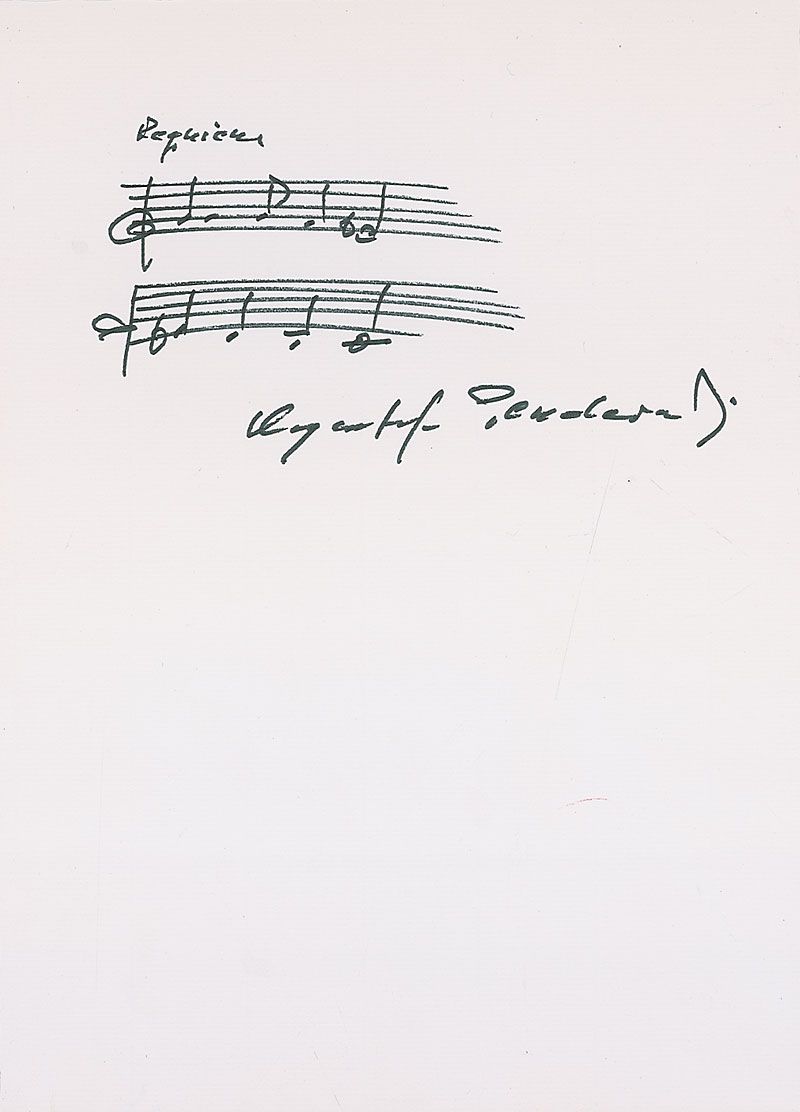 Requiem
Krzysztof Penderecki